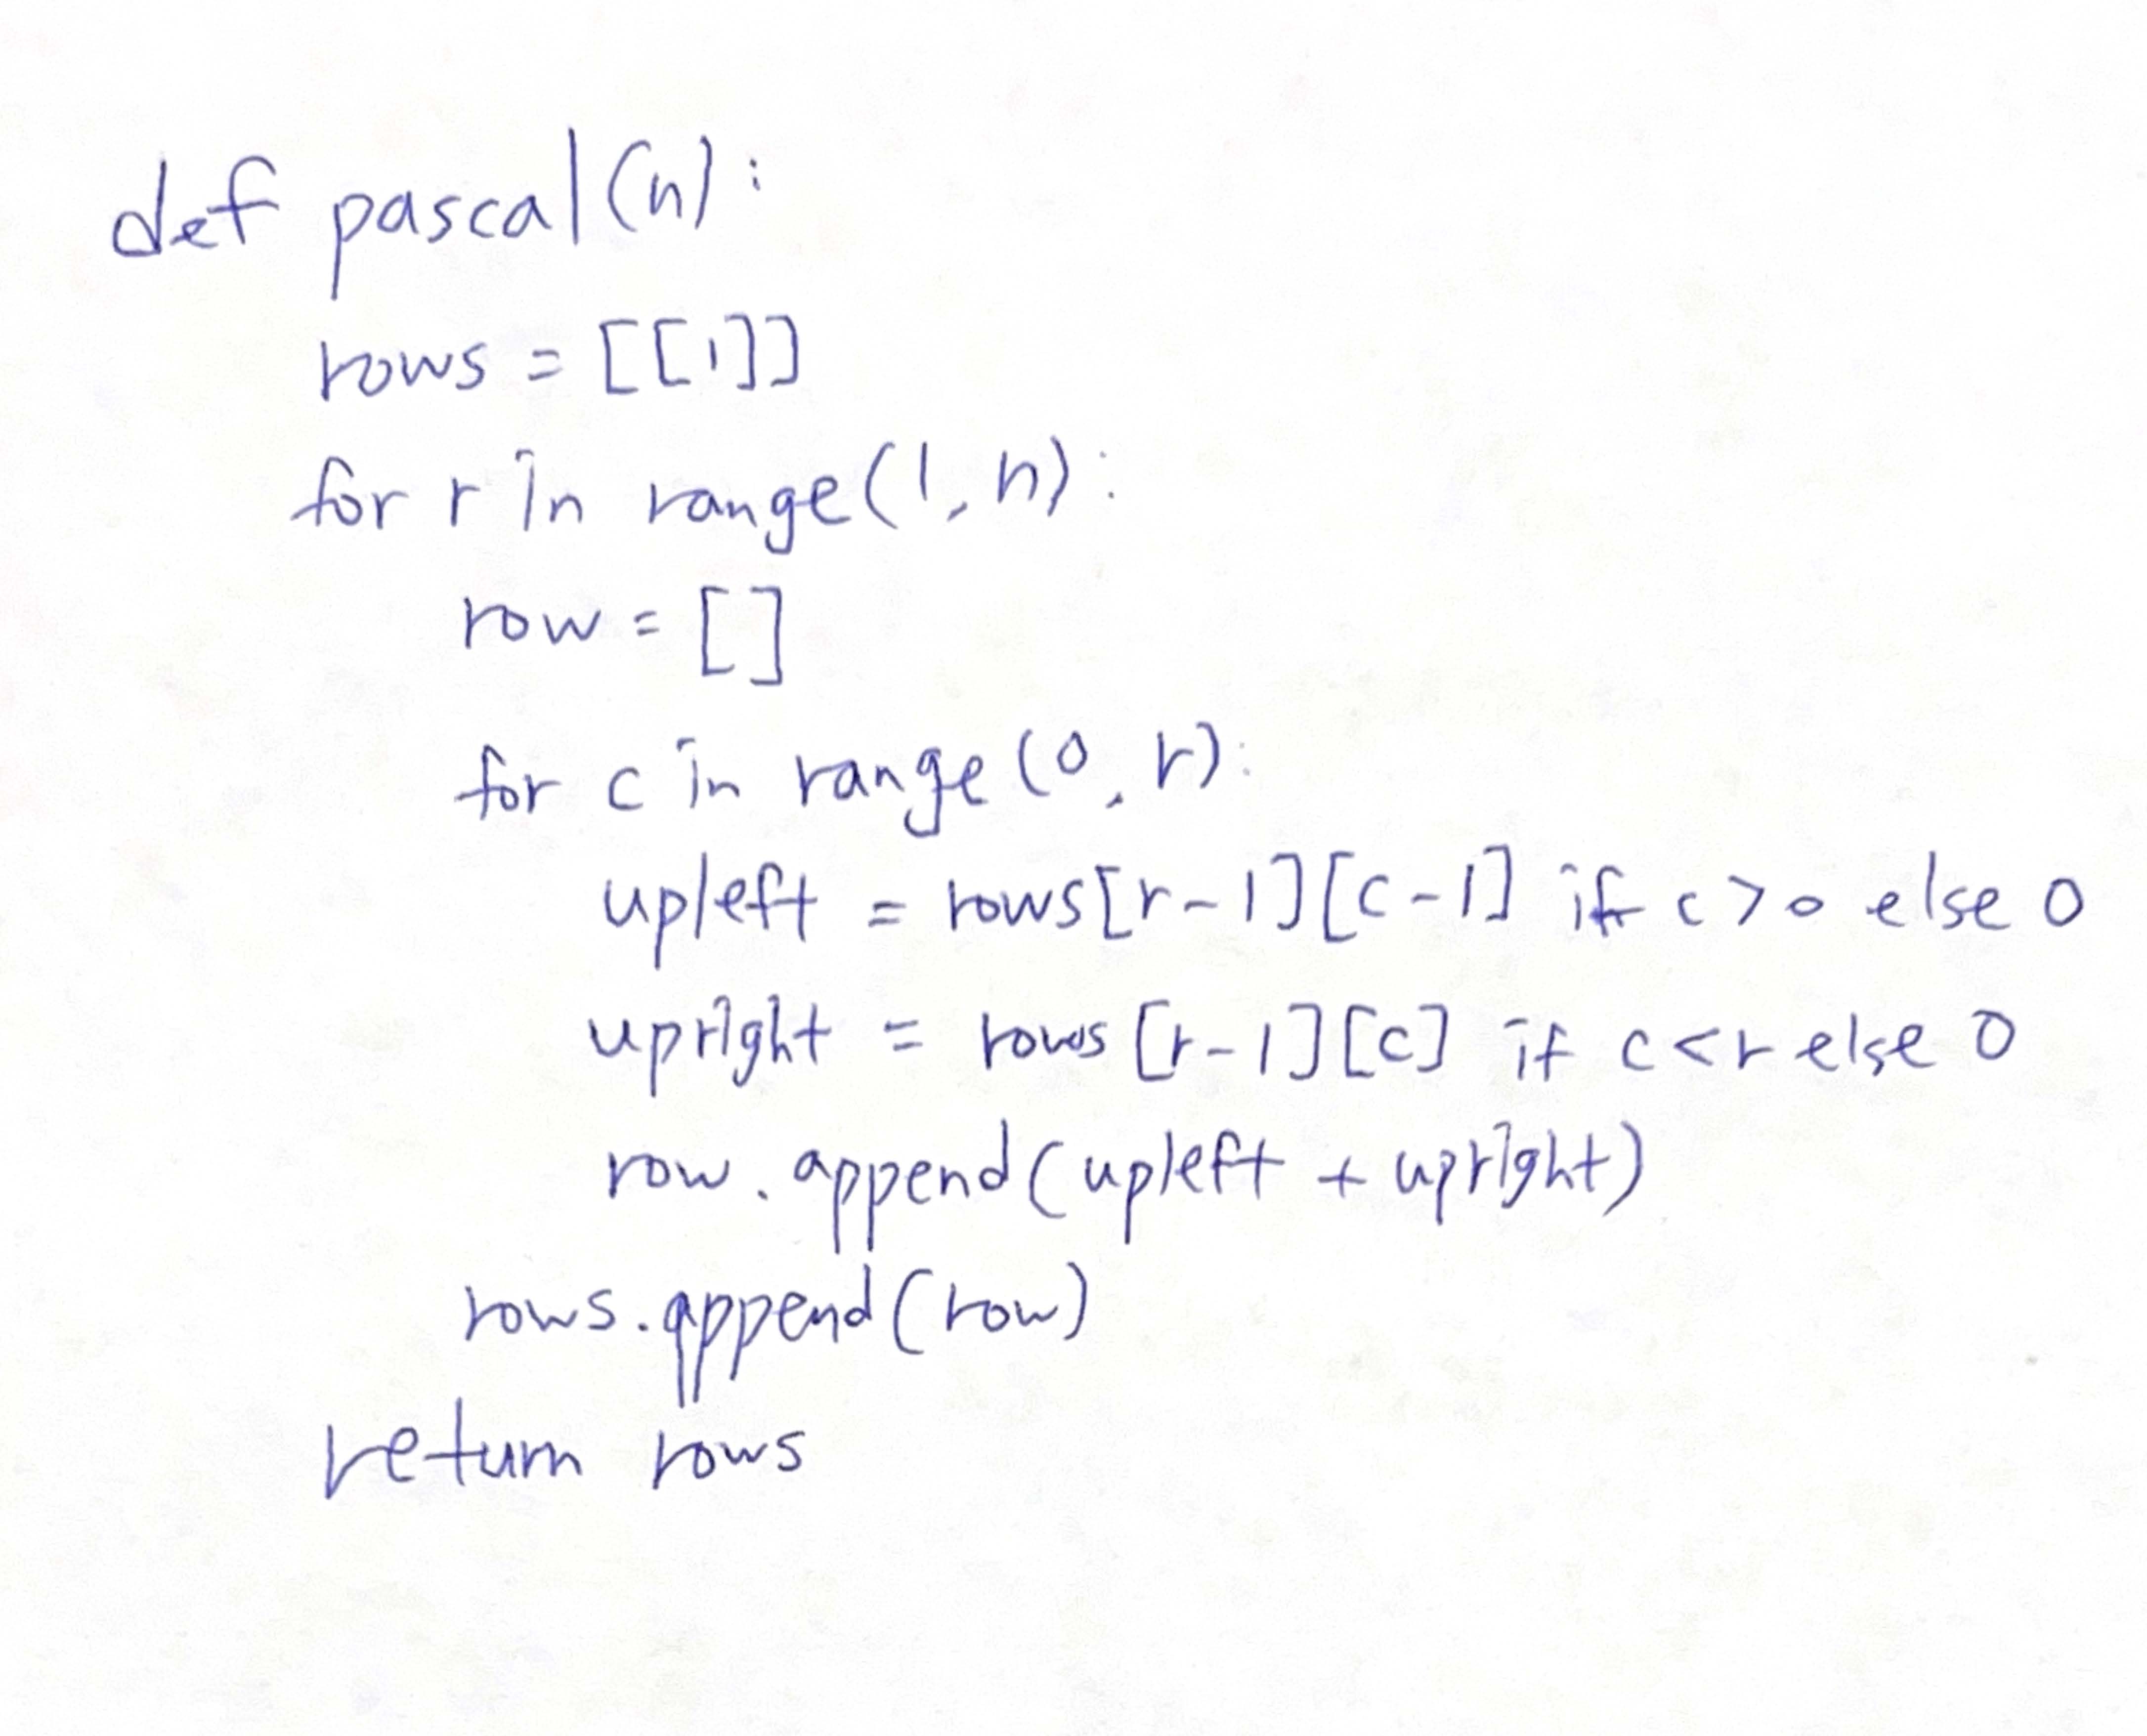 def pascal(n):
rows = [[1]]
for r in range(1, n):
row = []
for c in range(0, r):
upleft = rows[r-1][c-1] if c > 0 else 0
upright = rows[r-1][c] if c < r else 0
row.append(upleft + upright)
rows.append(row)
return rows